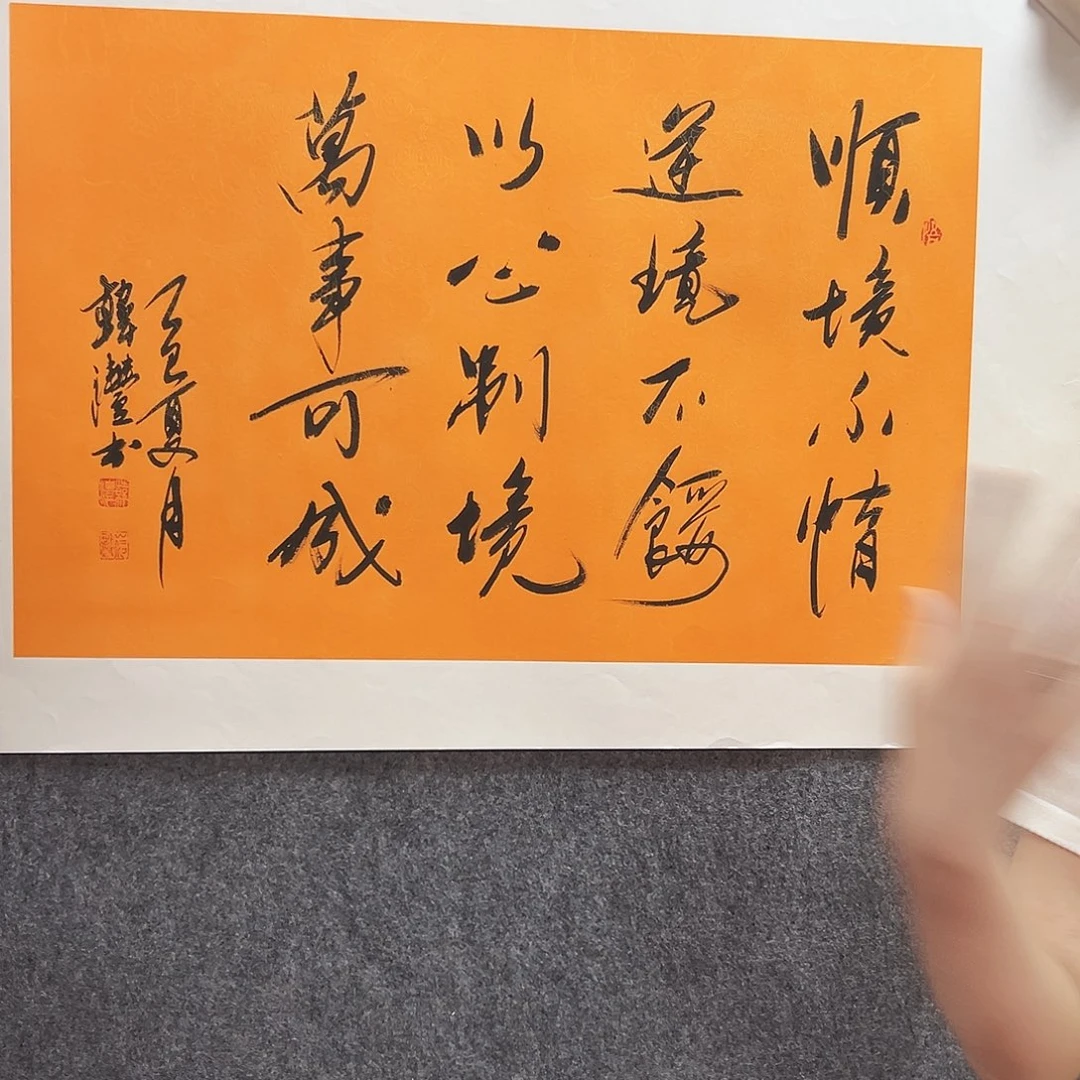 順境不惰
逆境不餒
以心制境
萬事可成
乙巳夏月
韓灃书